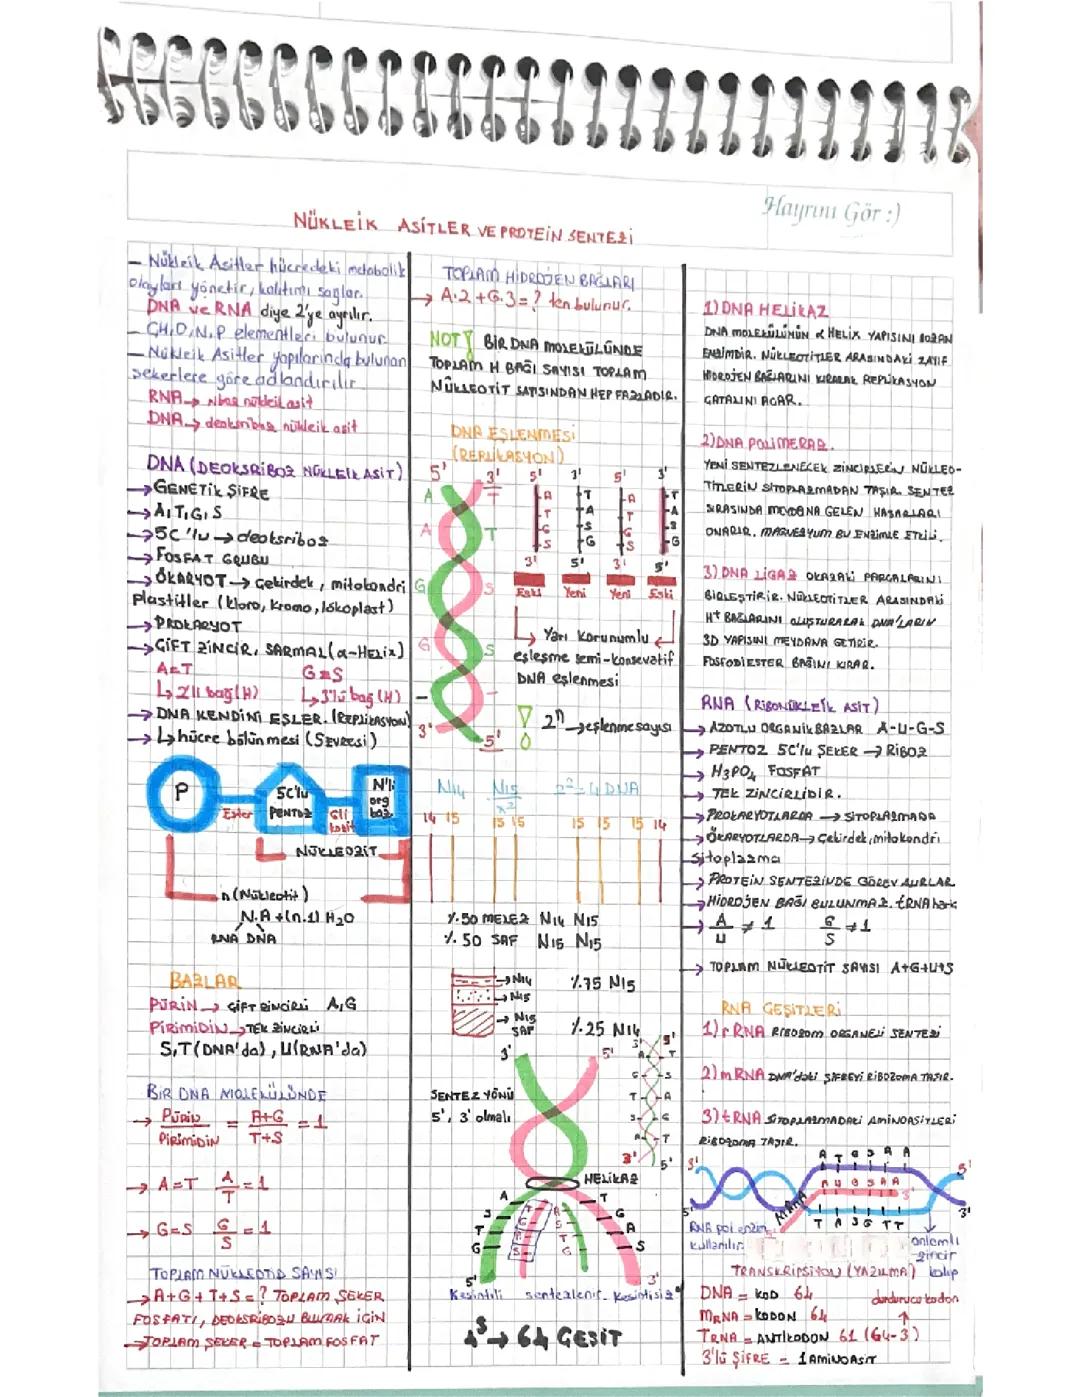 Hayrını Gör :)
NÜKLEİK ASİTLER VE PROTEİN SENTEZİ
— Nükleik Asitler hücredeki metabolik
olayları yönetir, kalıtımı sağlar.
DNA ve RNA diye 2'ye ayrılır.
— C,H,O,N,P elementleri bulunur.
— Nükleik Asitler yapılarında bulunan
şekerlere göre adlandırılır.
RNA → riboz nükleik asit
DNA → deoksiriboz nükleik asit
DNA (DEOKSİRİBOZ NÜKLEİK ASİT)
→ GENETİK ŞİFRE
→ A,T,G,S
→ 5C'lu → deoksriboz
→ FOSFAT GRUBU
→ ÖKARYOT → Çekirdek, mitokondri
Plastitler (kloro, Kromo, lökoplast)
→ PROKARYOT
→ ÇİFT ZİNCİR, SARMAL (α-HELİX)
A=T G≡S
↳ 2'li bağ (H) ↳ 3'lü bağ (H)
→ DNA KENDİNİ EŞLER. (REPLİKASYON)
→ ↳ hücre bölünmesi (S evresi)
P
5C'lu
PENTOZ
N'li
org
baz
Ester
Gli
kozit
NÜKLEOZİT
n (Nükleotit)
N.A + (n-1) H₂O
RNA DNA
BAZLAR
PÜRİN → ÇİFT ZİNCİRLİ A,G
PİRİMİDİN → TEK ZİNCİRLİ
S,T (DNA'da), U (RNA'da)
BİR DNA MOLEKÜLÜNDE
→ PÜRİN / PİRİMİDİN = A+G / T+S = 1
→ A=T A/T = 1
→ G=S G/S = 1
TOPLAM NÜKLEOTİD SAYISI
→ A+G+T+S = ? TOPLAM ŞEKER
FOSFATI, DEOKSRİBOZU BULMAK İÇİN
→ TOPLAM ŞEKER = TOPLAM FOSFAT
TOPLAM HİDROJEN BAĞLARI
→ A.2 + G.3 = ? ten bulunur.
NOT BİR DNA MOLEKÜLÜNDE
TOPLAM H BAĞI SAYISI TOPLAM
NÜKLEOTİT SAYISINDAN HEP FAZLADIR.
DNA EŞLENMESİ
(REPLİKASYON)
5' 3' 5' 3' 5' 3'
A
A T
G S
G S
3' 5'
A T A T
T A T A
G S G S
S G S G
3' 5' 3' 5'
Eski Yeni Yeni Eski
→ Yarı Korunumlu
eşleşme semi-konsevatif
DNA eşlenmesi
! 2ⁿ → eşlenme sayısı
N14 N15 2² = 4 DNA
x2
14 15 15 15 15 15 15 14
%50 MELEZ N14 N15
%50 SAF N15 N15
→ N14
→ N15
→ N15
SAF
%75 N15
%25 N14
SENTEZ YÖNÜ
5', 3' olmalı
3' 5'
3' 5'
A T
G S
T A
S G
A T
3' 5'
HELİKAZ
A T
S G
T A
G S
5' 3'
Kesintili sentezlenir. Kesintisiz
4³ → 64 ÇEŞİT
1) DNA HELİKAZ
DNA MOLEKÜLÜNÜN α HELİX YAPISINI BOZAN
ENZİMDİR. NÜKLEOTİTLER ARASINDAKİ ZAYIF
HİDROJEN BAĞLARINI KIRARAK REPLİKASYON
ÇATALINI AÇAR.
2) DNA POLİMERAZ.
YENİ SENTEZLENECEK ZİNCİRLERİN NÜKLEO-
TİTLERİN SİTOPLAZMADAN TAŞIR. SENTEZ
SIRASINDA MEYDANA GELEN HASARLARI
ONARIR. MAGNEZYUM BU ENZİMLE ETKİLİ.
3) DNA LİGAZ OKAZAKİ PARÇALARINI
BİRLEŞTİRİR. NÜKLEOTİTLER ARASINDAKİ
H⁺ BAĞLARINI OLUŞTURARAK DNA'LARIN
3D YAPISINI MEYDANA GETİRİR.
FOSFODİESTER BAĞINI KIRAR.
RNA (RİBONÜKLEİK ASİT)
→ AZOTLU ORGANİK BAZLAR A-U-G-S
→ PENTOZ 5C'lu ŞEKER → RİBOZ
→ H₃PO₄ FOSFAT
→ TEK ZİNCİRLİDİR.
→ PROKARYOTLARDA → SİTOPLAZMADA
→ ÖKARYOTLARDA → Çekirdek, mitokondri
Sitoplazma
→ PROTEİN SENTEZİNDE GÖREV ALIRLAR
→ HİDROJEN BAĞI BULUNMAZ. tRNA hariç
→ A/U ≠ 1 G/S ≠ 1
→ TOPLAM NÜKLEOTİT SAYISI A+G+U+S
RNA ÇEŞİTLERİ
1) rRNA RİBOZOM ORGANELİ SENTEZİ
2) mRNA DNA'daki ŞİFREYİ RİBOZOMA TAŞIR.
3) tRNA SİTOPLAZMADAKİ AMİNOASİTLERİ
RİBOZOMA TAŞIR.
3' A T G S A A 5'
A U G S A A 3'
5' mRNA T A S G T T 3'
RNA pol enzim
kullanılır.
anlamlı
zincir
kalıp
TRANSKRİPSİYON (YAZILMA)
DNA = KOD 64 durdurucu kodon
MRNA = KODON 64
TRNA = ANTİKODON 61 (64-3)
3'lü ŞİFRE = 1 AMİNOASİT